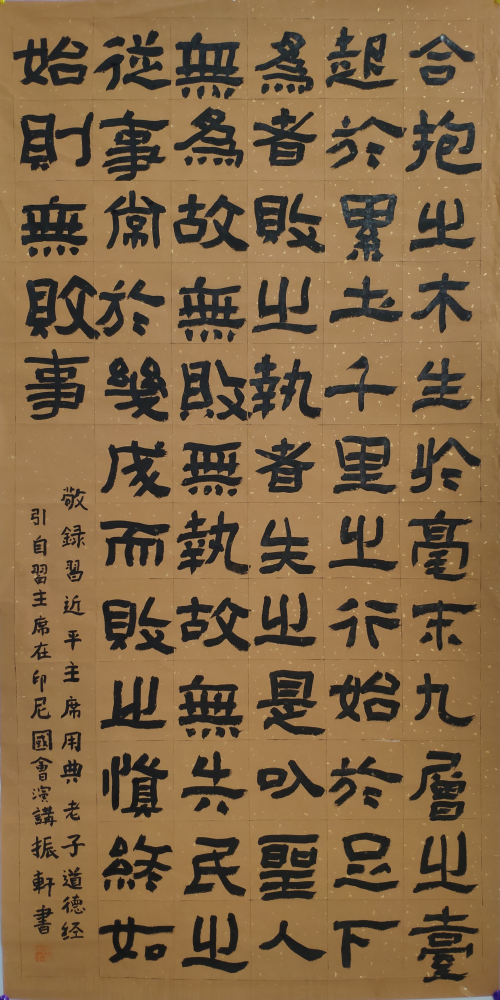 合抱之木生於毫末九層之臺
起於累土千里之行始於足下
為者敗之執者失之是以聖人
無為故無敗無執故無失民之
從事常於幾成而敗之慎終如
始則無敗事
敬録習近平主席用典老子道德经
引自習主席在印尼國會演講振軒書